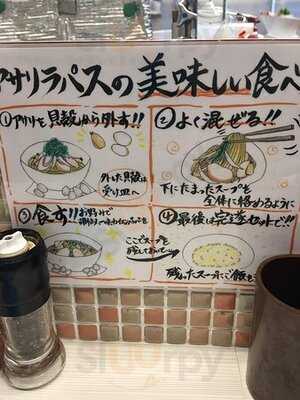 アサリラパスの美味しい食べ
①アサリを貝殻から外す!!
外した貝殻は
受け皿へ
②よく混ぜる!!
下にたまったスープを
全体に絡めるように
③食す!!お好みで
ここでスープを
残しておいて
④最後は完まぜセットで!!
残ったスープにご飯を